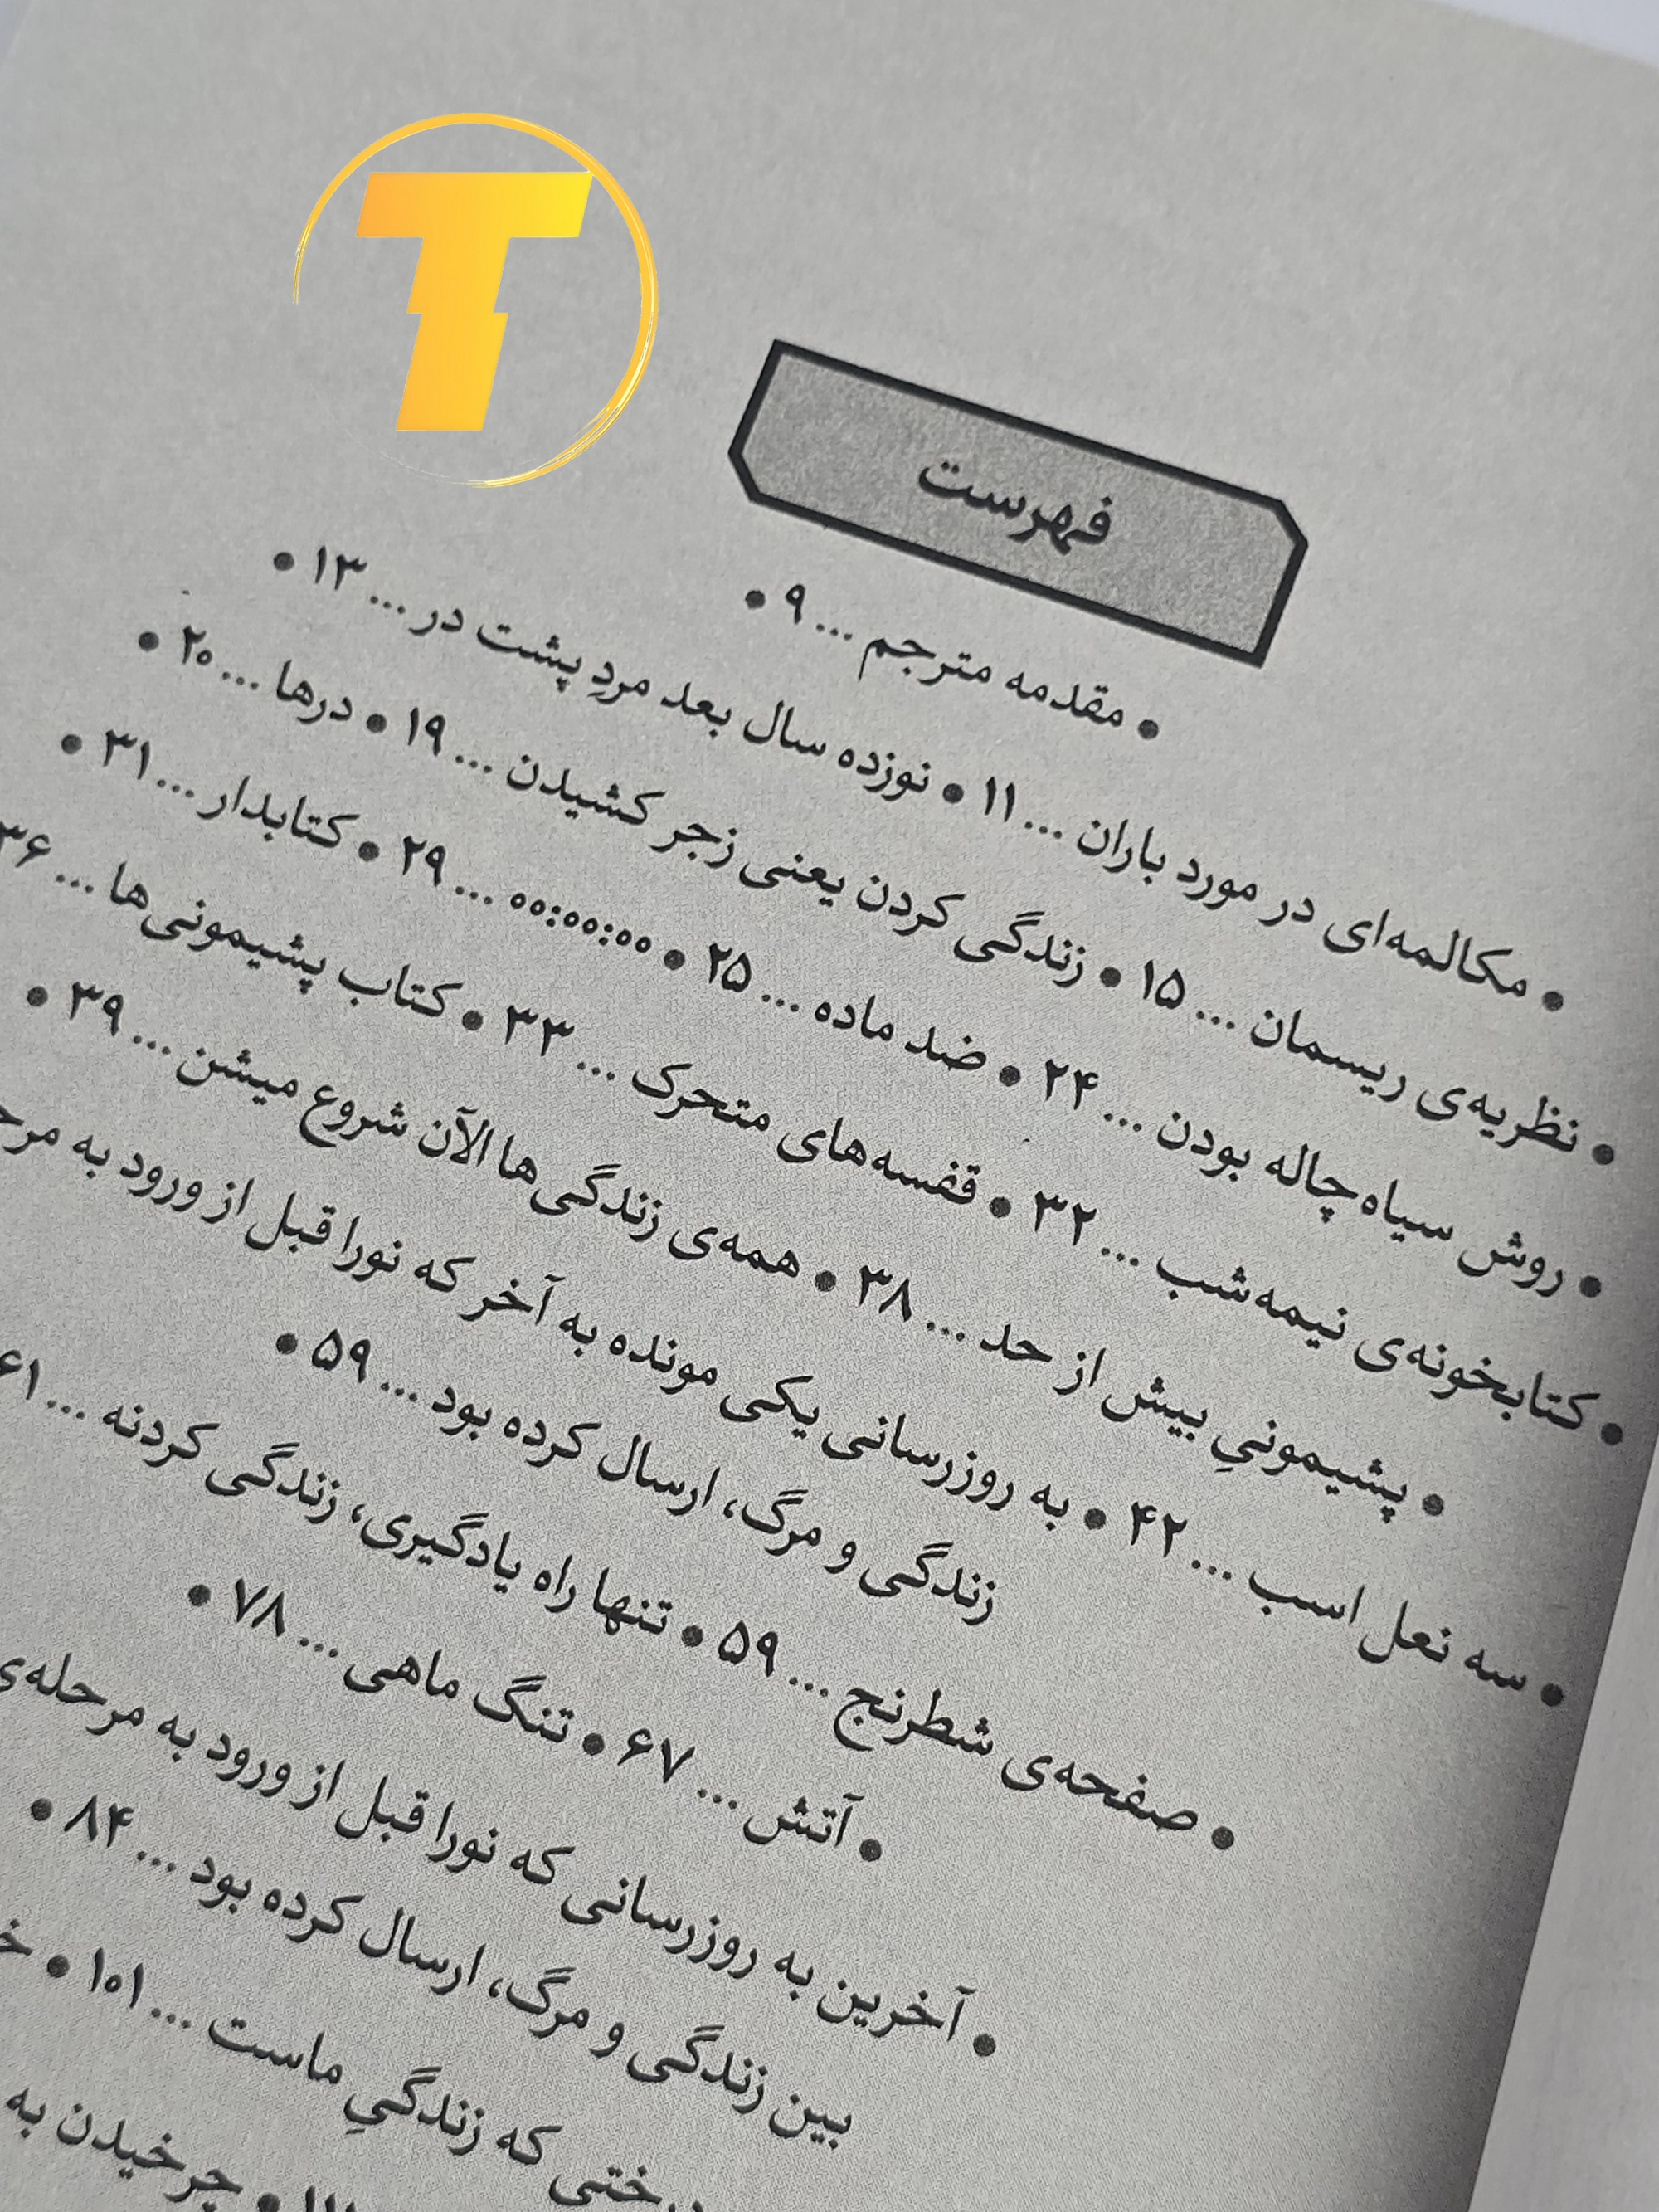 T
فهرست
• مقدمه مترجم ... ۹ •
• مکالمه‌ای در مورد باران ... ۱۱ • نوزده سال بعد مردِ پشت در ... ۱۳ •
• نظریه‌ی ریسمان ... ۱۵ • زندگی کردن یعنی زجر کشیدن ... ۱۹ • درها ... ۲۰ •
• روش سیاه چاله بودن ... ۲۴ • ضد ماده ... ۲۵ • ۰۰:۰۰:۰۰ ... ۲۹ • کتابدار ... ۳۱ •
• کتابخونه‌ی نیمه‌شب ... ۳۲ • قفسه‌های متحرک ... ۳۳ • کتاب پشیمونی‌ها ... ۳۶
• پشیمونیِ بیش از حد ... ۳۸ • همه‌ی زندگی‌ها الآن شروع میشن ... ۳۹ •
• سه نعل اسب ... ۴۲ • به روزرسانی یکی مونده به آخر که نورا قبل از ورود به
زندگی و مرگ، ارسال کرده بود ... ۵۹ •
• صفحه‌ی شطرنج ... ۵۹ • تنها راه یادگیری، زندگی کردنه ... ۶۱
• آتش ... ۶۷ • تنگ ماهی ... ۷۸ •
• آخرین به روزرسانی که نورا قبل از ورود به مرحله‌ی
بین زندگی و مرگ، ارسال کرده بود ... ۸۴ •
که زندگیِ ماست ... ۱۰۱ •
• چرخیدن به